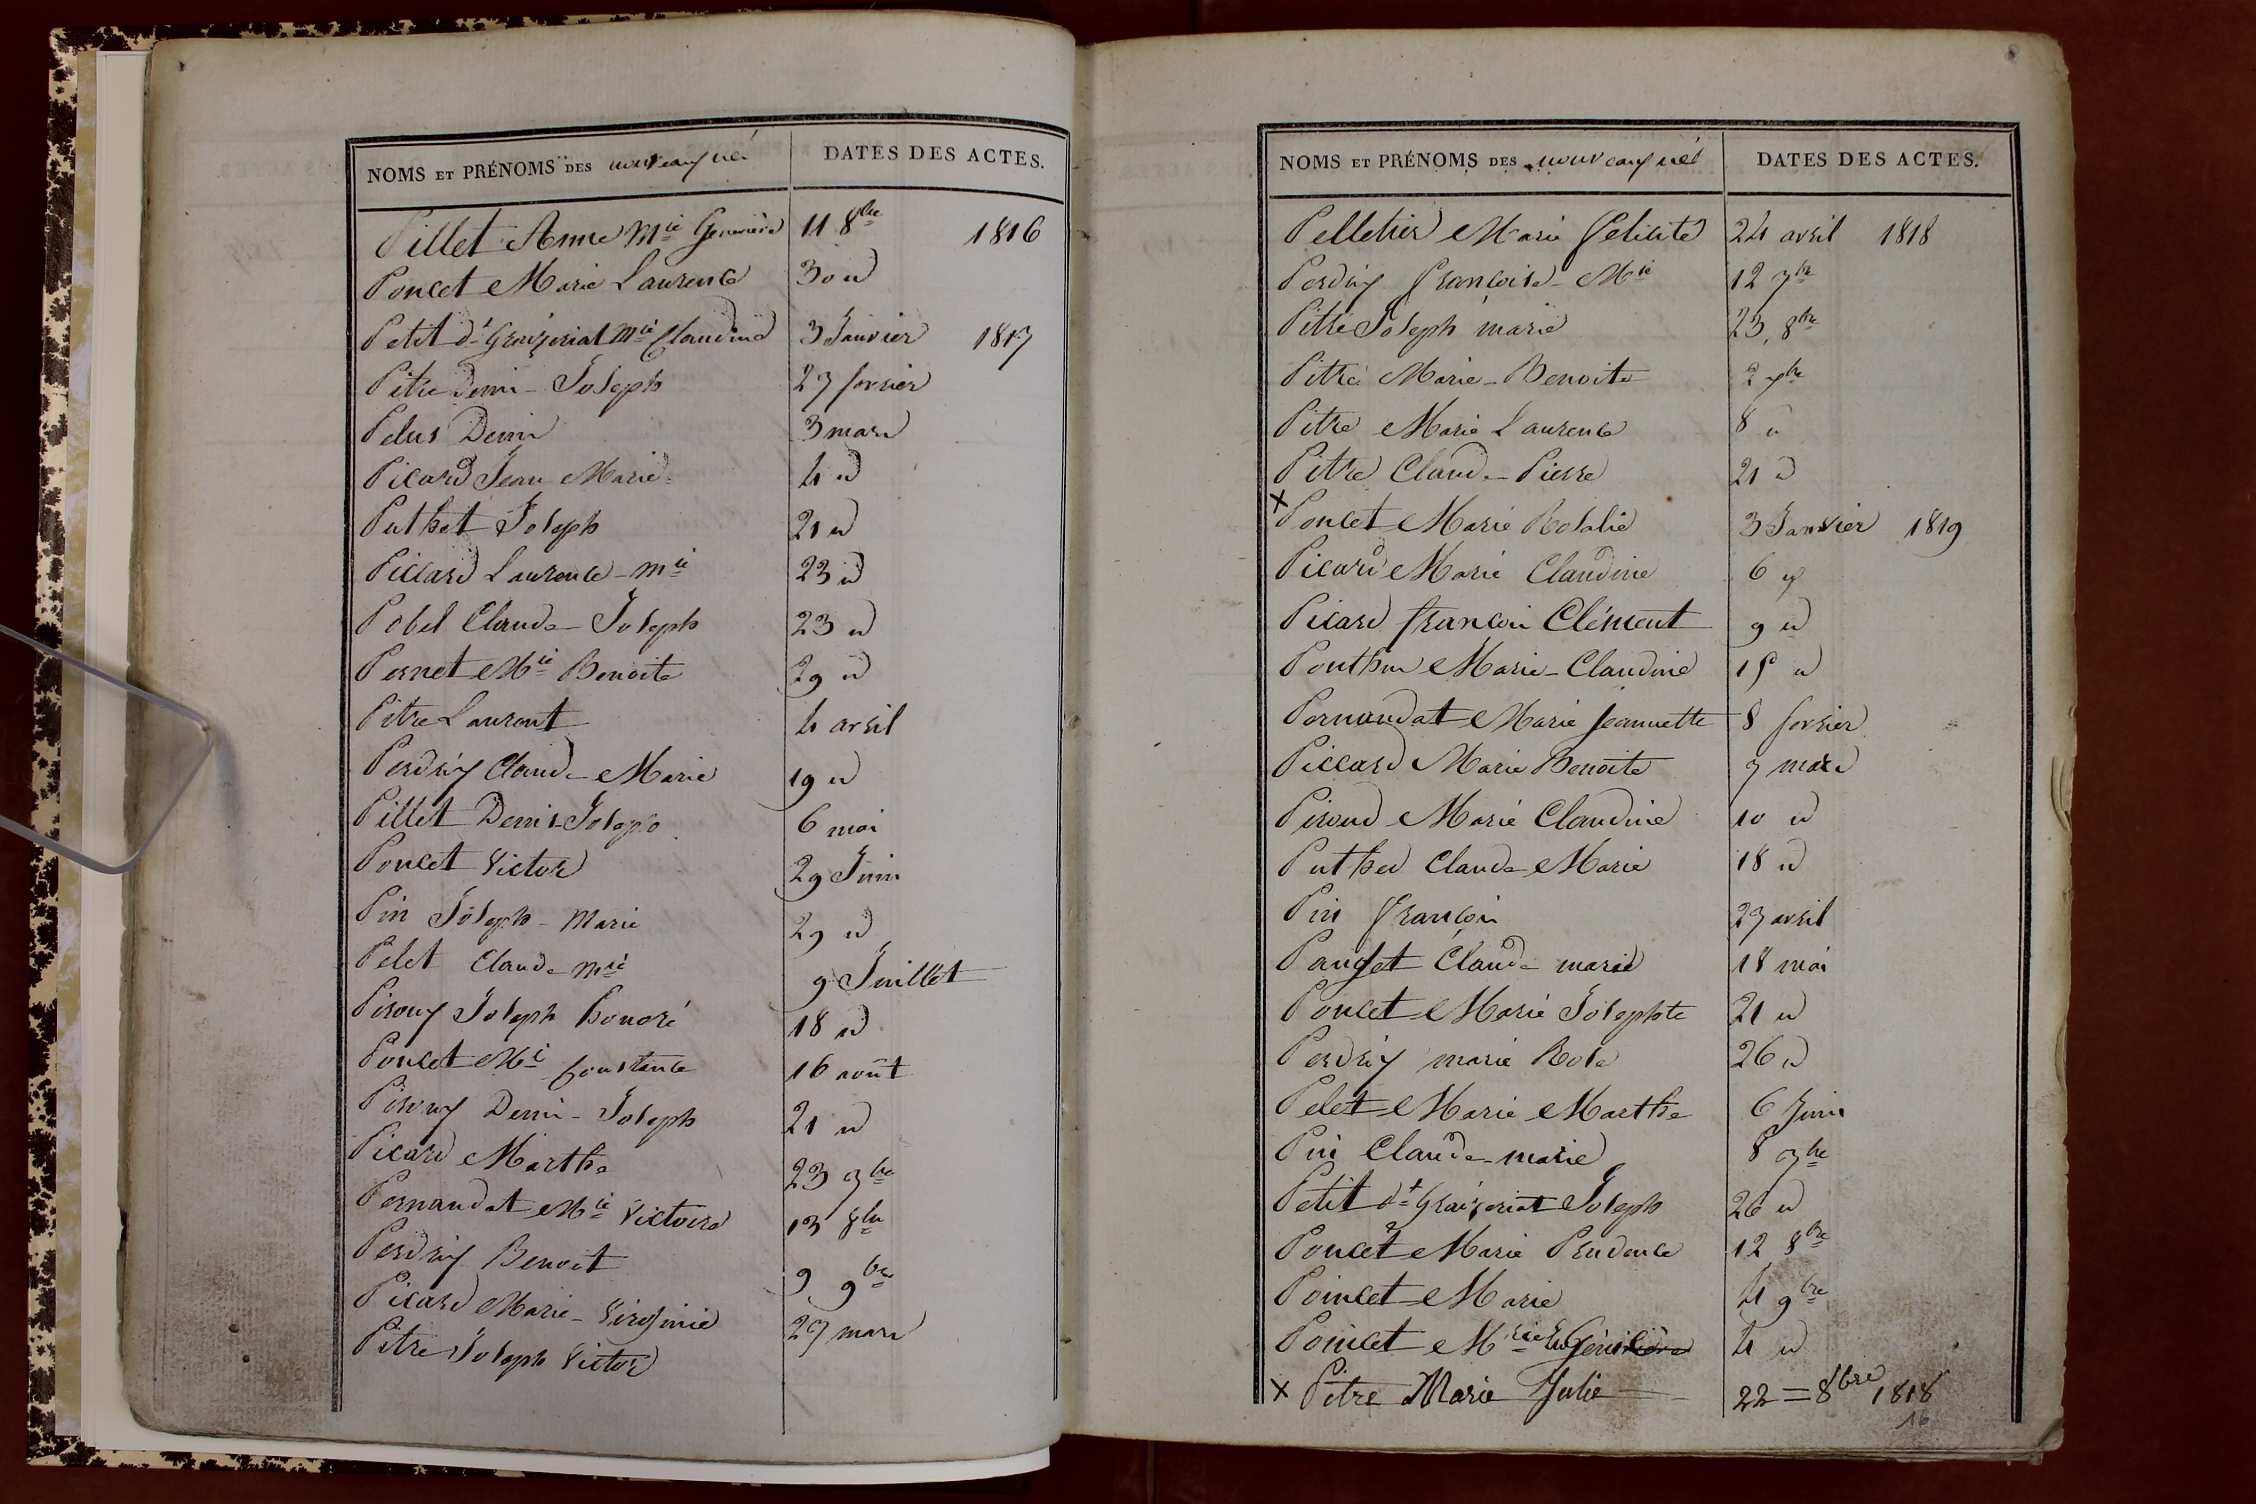 NOMS ET PRÉNOMS DES nouveaux nés DATES DES ACTES.
Pillet Anne Mie Geneviève 11 8bre 1816
Poncet Marie Laurence 30 id
Petit dt Graizeriat Mie Claudine 3 Janvier 1817
Pitre Denis Joseph 27 fevrier
Pelus Denis 3 mars
Picard Jean Marie 4 id
Puthet Joseph 21 id
Piccard Laurence Mie 23 id
Pobel Claude Joseph 23 id
Pernet Mie Benoite 29 id
Pitre Laurent 4 avril
Perdrix Claude Marie 19 id
Pillet Denis Joseph 6 mai
Poncet Victor 29 Juin
Pin Joseph Marie 29 id
Pelet Claude Mrie 9 Juillet
Piroux Joseph honoré 18 id
Poncet Mie Constance 16 août
Piroux Denis Joseph 21 id
Picard Marthe 23 7bre
Pernaudat Mie Victoire 13 8bre
Perdrix Benoit 9 9bre
Picard Marie Virginie 27 mars
Pitre Joseph Victor
NOMS ET PRÉNOMS DES nouveaux nés DATES DES ACTES.
Pelletier Marie Felicité 24 avril 1818
Perdrix françoise Mie 12 7bre
Pitre Joseph marie 23, 8bre
Pitre Marie Benoite 2 xbre
Pitre Marie Laurence 8 id
Pitre Claude Pierre 21 id
x Poncet Marie Rosalie 3 Janvier 1819
Picard Marie Claudine 6 id
Picard françois Clément 9 id
Ponthus Marie Claudine 15 id
Pernaudat Marie Jeannette 8 fevrier
Piccard Marie Benoite 7 mars
Piroud Marie Claudine 10 id
Puthed Claude Marie 18 id
Pin françois 27 avril
Pauget Claude marie 18 mai
Poncet Marie Josephte 21 id
Perdrix marie Rose 26 id
Pelet Marie Marthe 6 Juin
Pin Claude marie 8 7bre
Petit dt Graizeriat Joseph 26 id
Poncet Marie Prudence 12 8bre
Poincet Marie 4 9bre
Poincet Mrie 4 id
x Pitre Marie Julie 22 = 8bre 1818
16